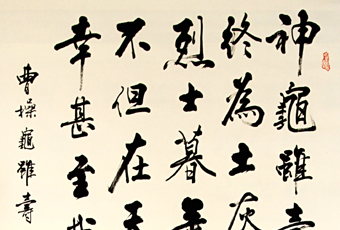 神龜雖壽
終為土灰
烈士暮年
不但在天
幸甚至哉
曹操龜雖壽